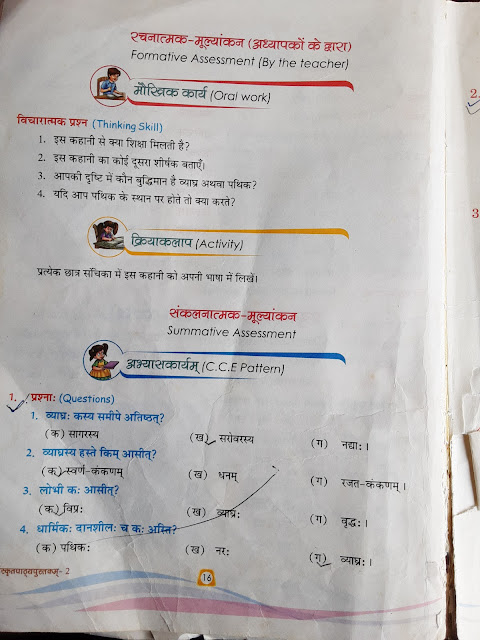 रचनात्मक-मूल्यांकन (अध्यापकों के द्वारा)
Formative Assessment (By the teacher)
मौखिक कार्य (Oral work)
विचारात्मक प्रश्न (Thinking Skill)
1. इस कहानी से क्या शिक्षा मिलती है?
2. इस कहानी का कोई दूसरा शीर्षक बताएँ।
3. आपकी दृष्टि में कौन बुद्धिमान है व्याघ्र अथवा पथिक?
4. यदि आप पथिक के स्थान पर होते तो क्या करते?
क्रियाकलाप (Activity)
प्रत्येक छात्र सचिका में इस कहानी को अपनी भाषा में लिखें।
संकलनात्मक-मूल्यांकन
Summative Assessment
अभ्यासकार्यम् (C.C.E Pattern)
1. प्रश्नाः (Questions)
1. व्याघ्रः कस्य समीपे अतिष्ठत्?
(क) सागरस्य (ख) सरोवरस्य (ग) नद्याः।
2. व्याघ्रस्य हस्ते किम् आसीत्?
(क) स्वर्ण-कंकणम् (ख) धनम् (ग) रजत-कंकणम्।
3. लोभी कः आसीत्?
(क) विप्रः (ख) व्याघ्रः (ग) वृद्धः।
4. धार्मिकः दानशीलः च कः अस्ति?
(क) पथिकः (ख) नरः (ग) व्याघ्रः।
स्कृतपाठ्यपुस्तकम्- 2
16
2.
3